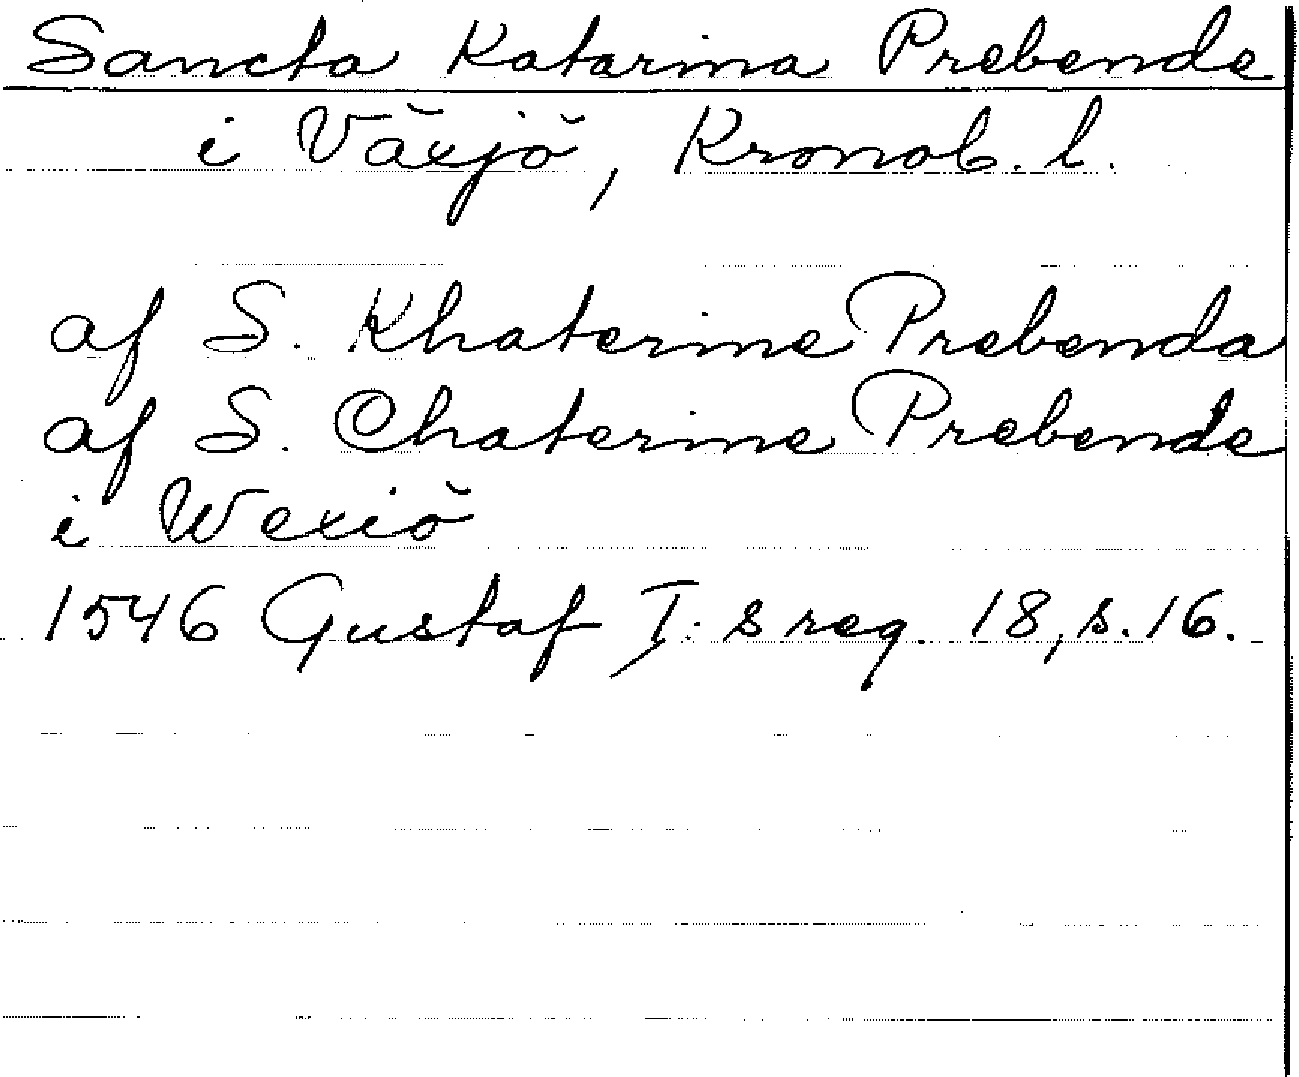 Sancta Katarina Prebende
i Växjö, Kronob. l.
af S. Khaterine Prebenda
af S. Chaterine Prebende
i Wexiö
1546 Gustaf I:s reg. 18, s. 16.